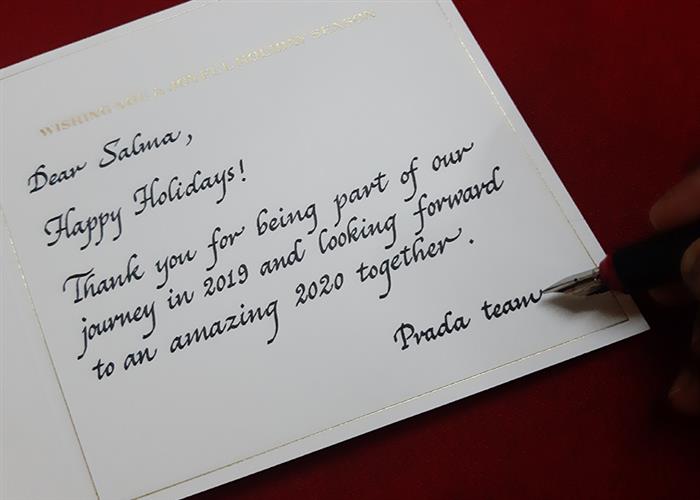 WISHING YOU A JOYFUL HOLIDAY SEASON
Dear Salma,
Happy Holidays!
Thank you for being part of our
journey in 2019 and looking forward
to an amazing 2020 together.
Prada team